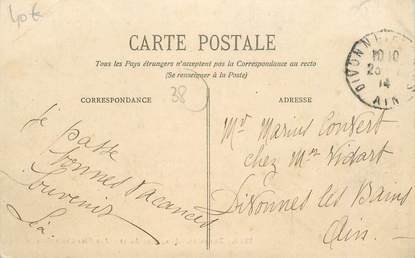 40€
CARTE POSTALE
Tous les Pays étrangers n'acceptent pas la Correspondance au recto
(Se renseigner à la Poste)
CORRESPONDANCE
38
ADRESSE
DIVONNE
14
AIN
je passe
bonnes vacances
Souvenir
Mr Marius Convert
chez Mr Vidart
Divonnes les Bains
Ain